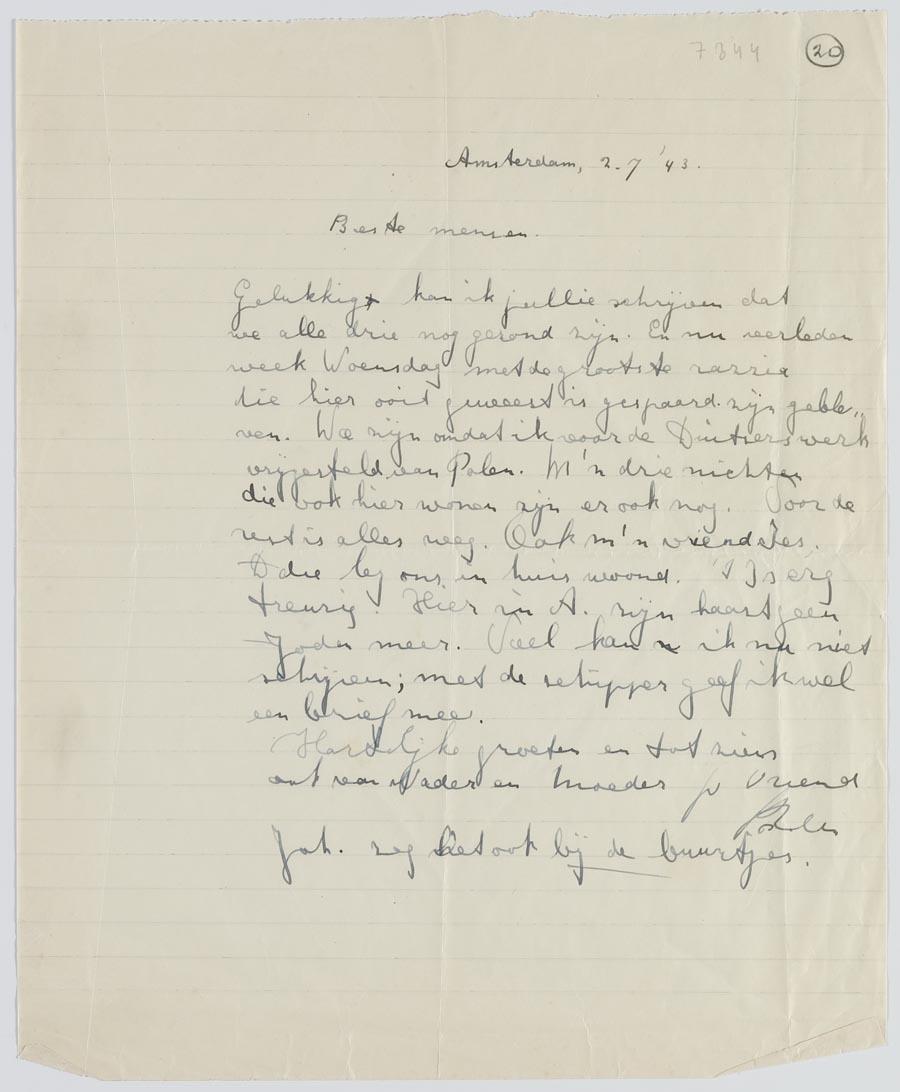 7344 20
Amsterdam, 2-7 '43.
Beste mensen.
Gelukkig kan ik jullie schrijven dat
we alle drie nog gezond zijn. En nu verleden
week Woensdag met de grootste razzia
die hier ooit geweest is gespaard zijn geble„
ven. We zijn omdat ik voor de Duitsers werk
vrijgesteld van Polen. M'n drie nichten
die ook hier wonen zijn er ook nog. Voor de
rest is alles weg. Ook m'n vriendjes.
D die bij ons in huis woond. 't Is erg
treurig. Hier in A. zijn haast geen
Joden meer. Veel kan ik nu niet
schrijven; met de schipper geef ik wel
een brief mee.
Hartelijke groeten en tot ziens
ook van Vader en Moeder jv Vriend
Joh. zeg het ook bij de buurtjes.